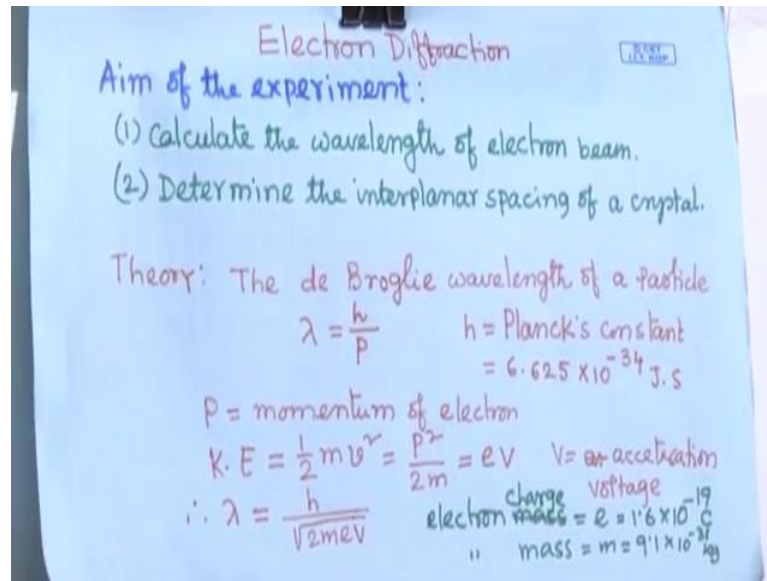 Electron Diffraction
Aim of the experiment:
(1) Calculate the wavelength of electron beam.
(2) Determine the interplanar spacing of a crystal.
Theory: The de Broglie wavelength of a Particle
λ = h/P h = Planck's constant
= 6.625 x 10^-34 J.S
P = momentum of electron
K.E = 1/2 mv² = P²/2m = eV V = accelication
voltage
∴ λ = h/√2meV electron charge = e = 1.6 x 10^-19 C
" mass = m = 9.1 x 10^-31 kg